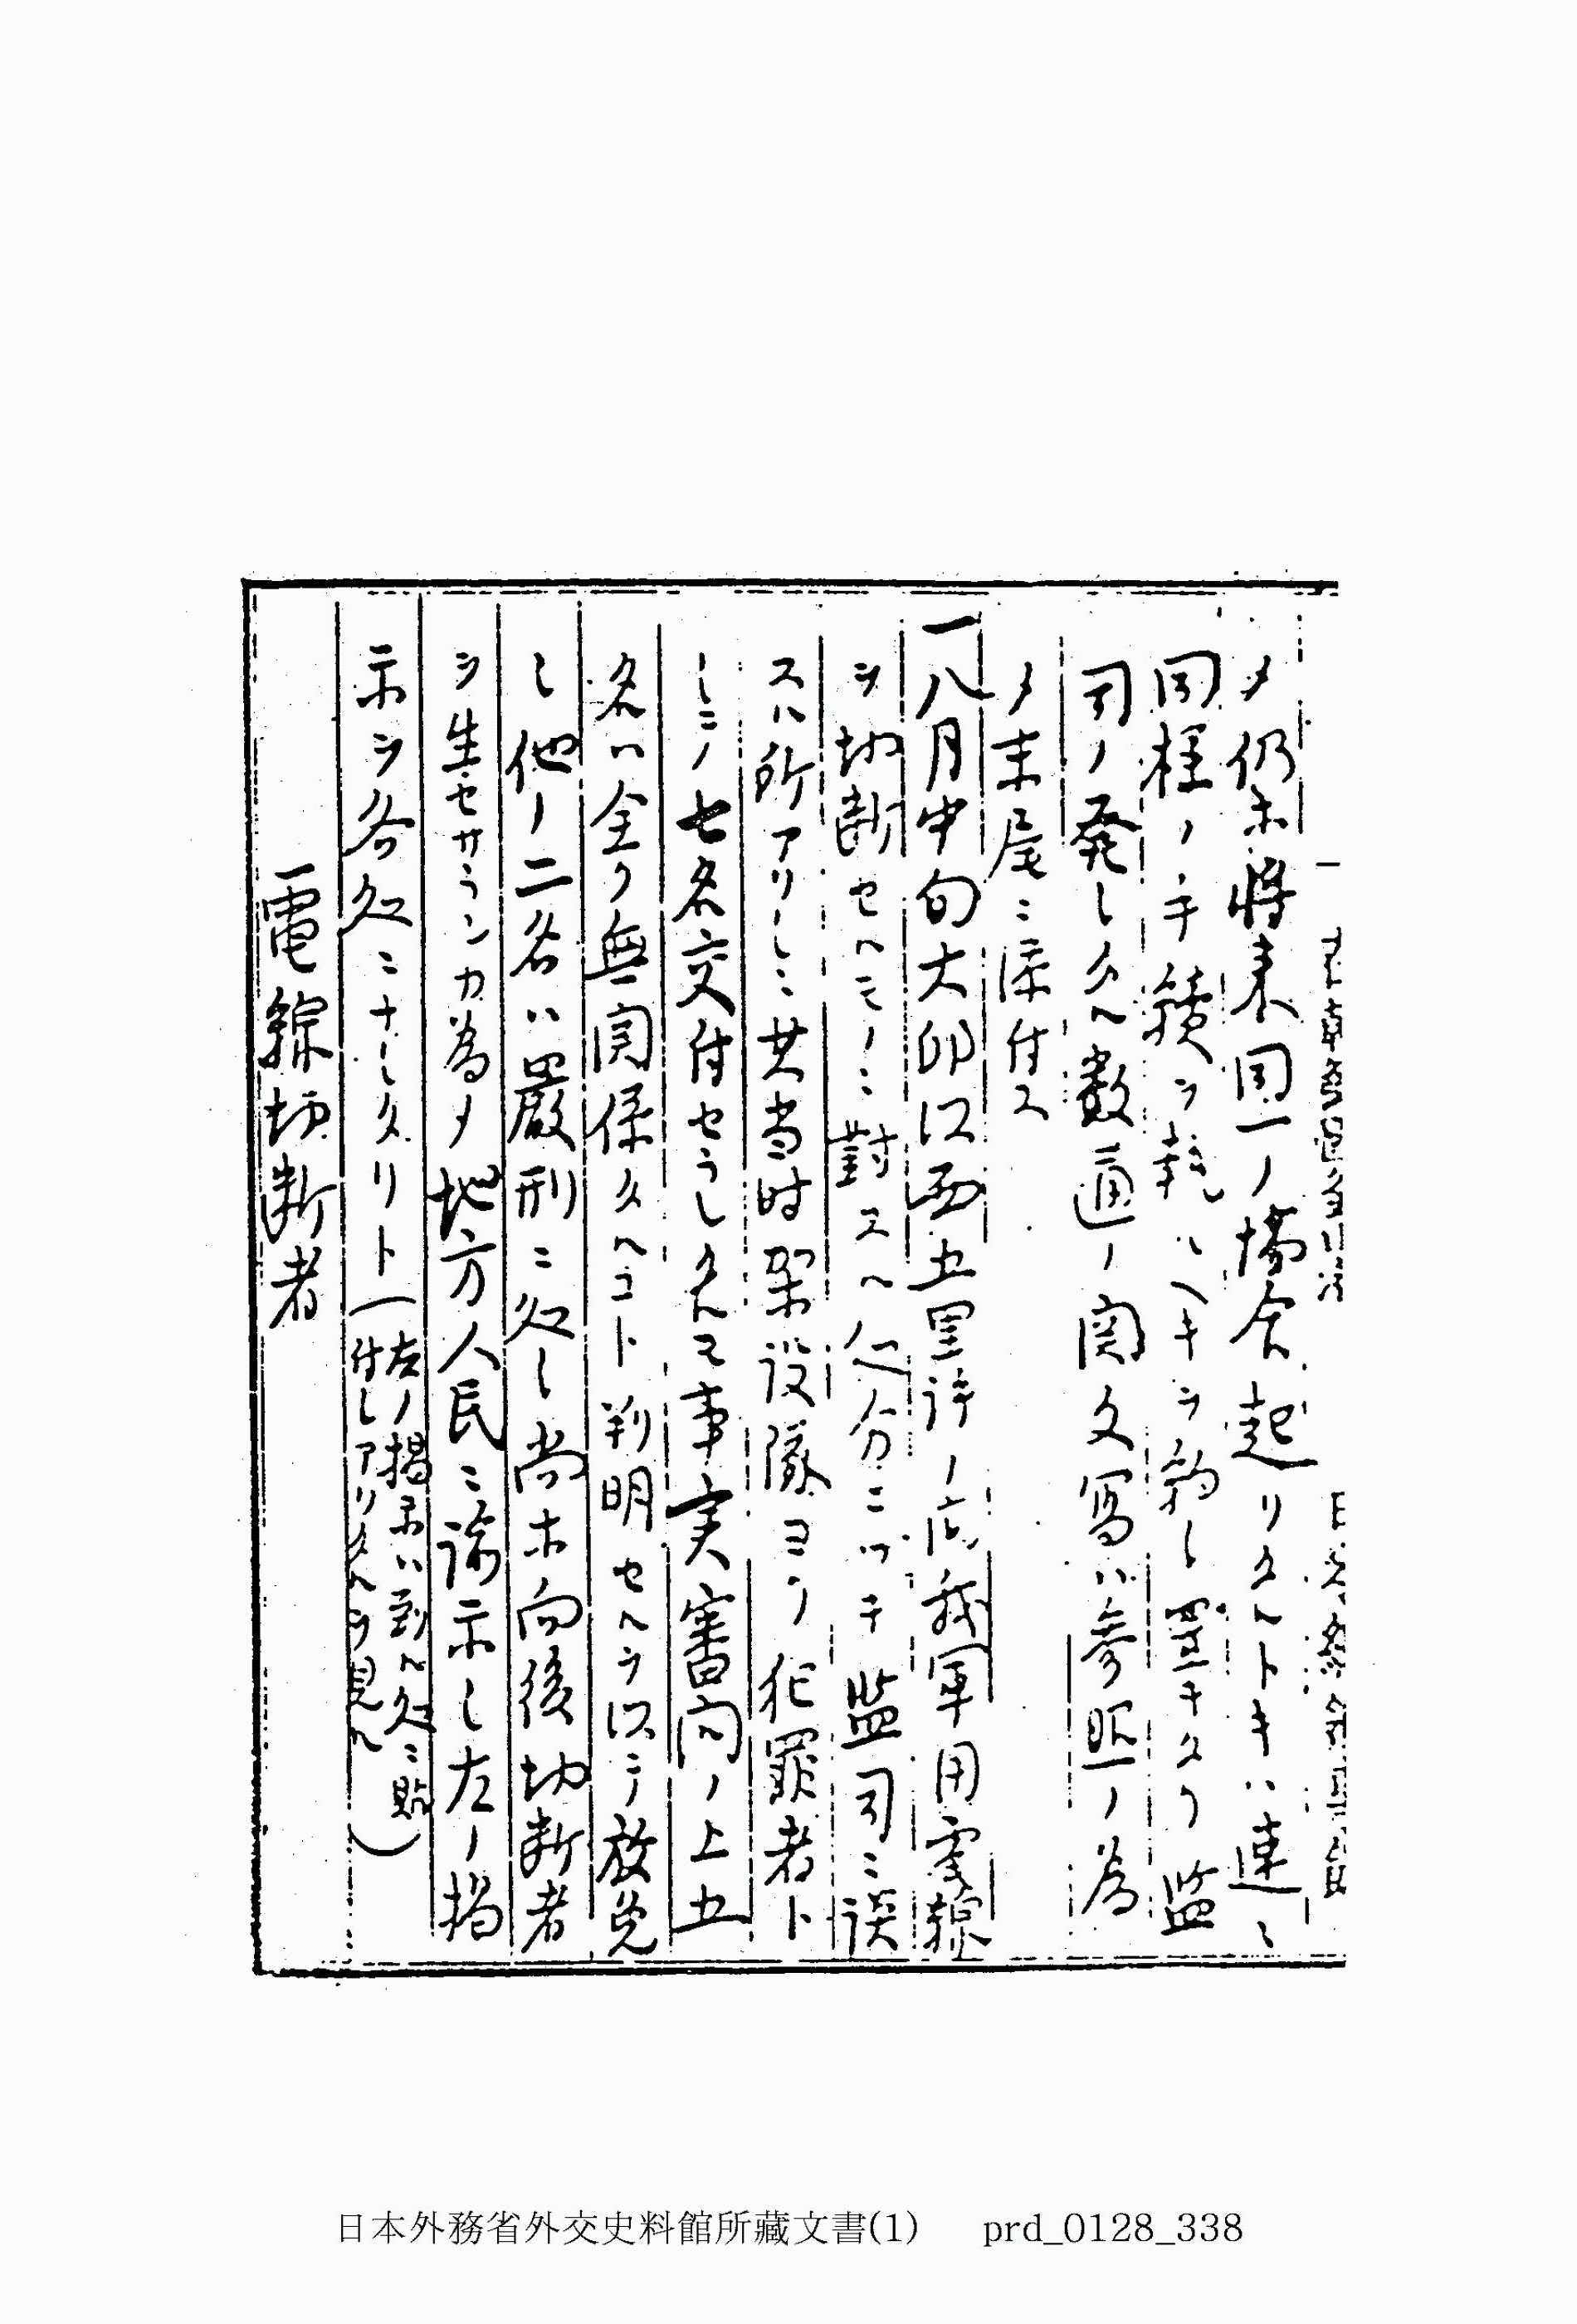 メ仍ホ将来同一ノ場合起リタルトキハ速ニ
同様ノ手続ヲ執ルヘキヲ約シ置キタリ監
司ノ発シタル数通ノ関文写ハ参照ノ為
メ末尾ニ添付ス
一八月中旬大邱以西五里許ノ処我軍用電線
ヲ切断セルモノニ對スル処分ニツキ監司ニ談
スル所アリシニ其当時架設隊ヨリ犯罪者ト
シテ七名交付セラレタルモ事実審問ノ上五
名ハ全ク無関係タルコト判明セルヲ以テ放免
シ他ノ二名ハ厳刑ニ処シ尚ホ向後切断者
ヲ生セサランカ為メ地方人民ニ諭示シ左ノ掲
示ヲ各処ニナシタリト(左ノ掲示ハ到ル処ニ貼
付シアリタルヲ見ル)
電線切断者
日本外務省外交史料館所藏文書(1) prd_0128_338